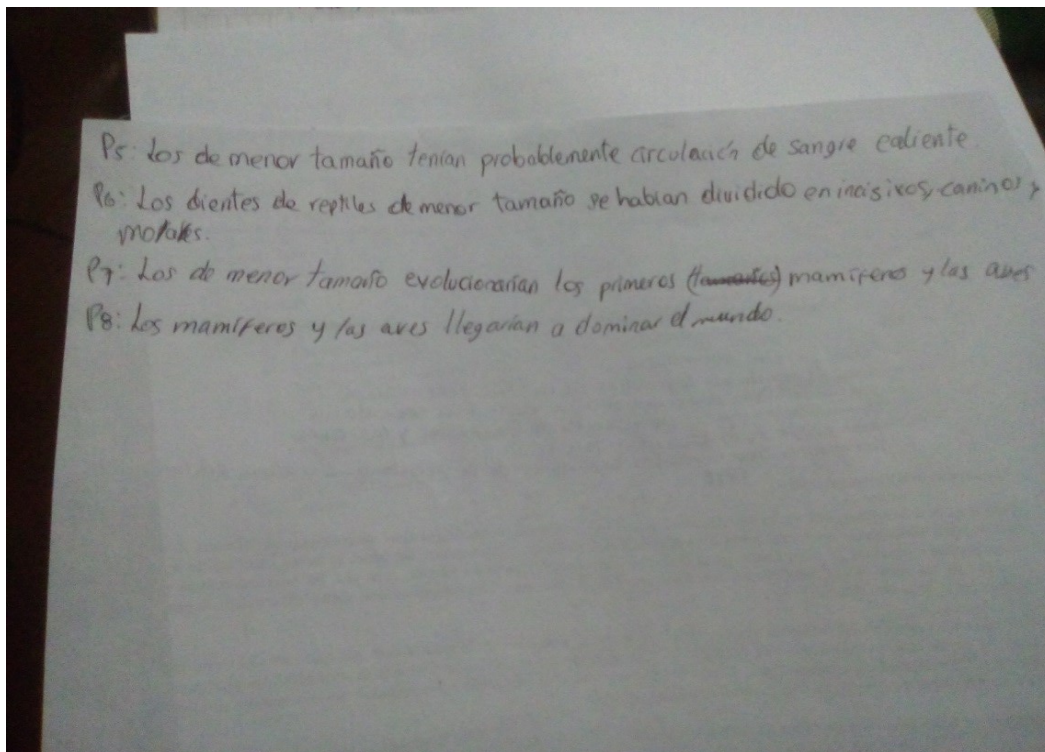 P5: Los de menor tamaño tenían probablemente circulación de sangre caliente.
P6: Los dientes de reptiles de menor tamaño se habían dividido en incisivos, caninos y
molares.
P7: Los de menor tamaño evolucionarían los primeros () mamíferos y las aves
P8: Los mamíferos y las aves llegarían a dominar el mundo.